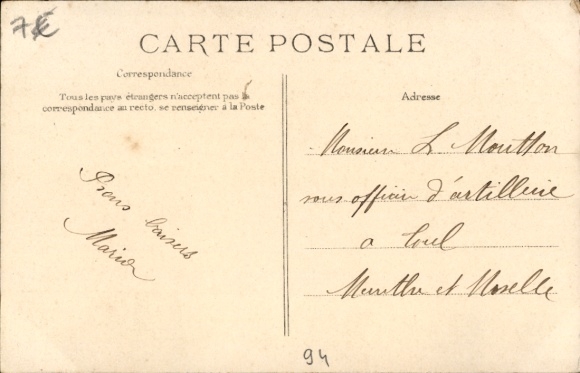 7€
CARTE POSTALE
Correspondance
Tous les pays étrangers n'acceptent pas la
correspondance au recto, se renseigner à la Poste
Adresse
Monsieur L Moutton
sous officier d'artillerie
a toul
Meurthe et Moselle
Bons baisers
Maria
94